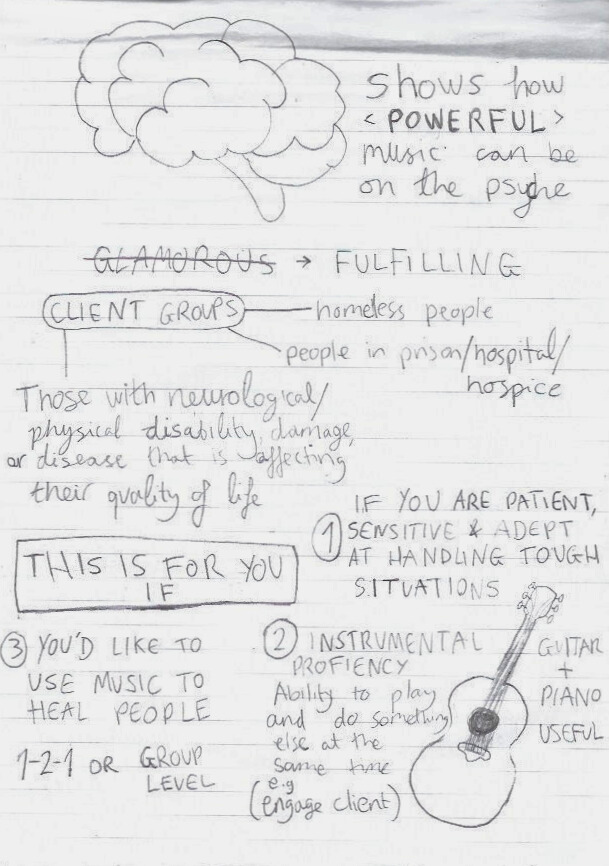 Shows how
<POWERFUL>
music can be
on the psyche
GLAMOROUS → FULFILLING
CLIENT GROUPS
homeless people
people in prison/hospital/
hospice
Those with neurological/
physical disability, damage,
or disease that is affecting
their quality of life
THIS IS FOR YOU
IF
① IF YOU ARE PATIENT,
SENSITIVE & ADEPT
AT HANDLING TOUGH
SITUATIONS
② INSTRUMENTAL
PROFIENCY
Ability to play
and do something
else at the
same time
e.g
(engage client)
GUITAR
+
PIANO
USEFUL
③ YOU'D LIKE TO
USE MUSIC TO
HEAL PEOPLE
1-2-1 OR GROUP
LEVEL